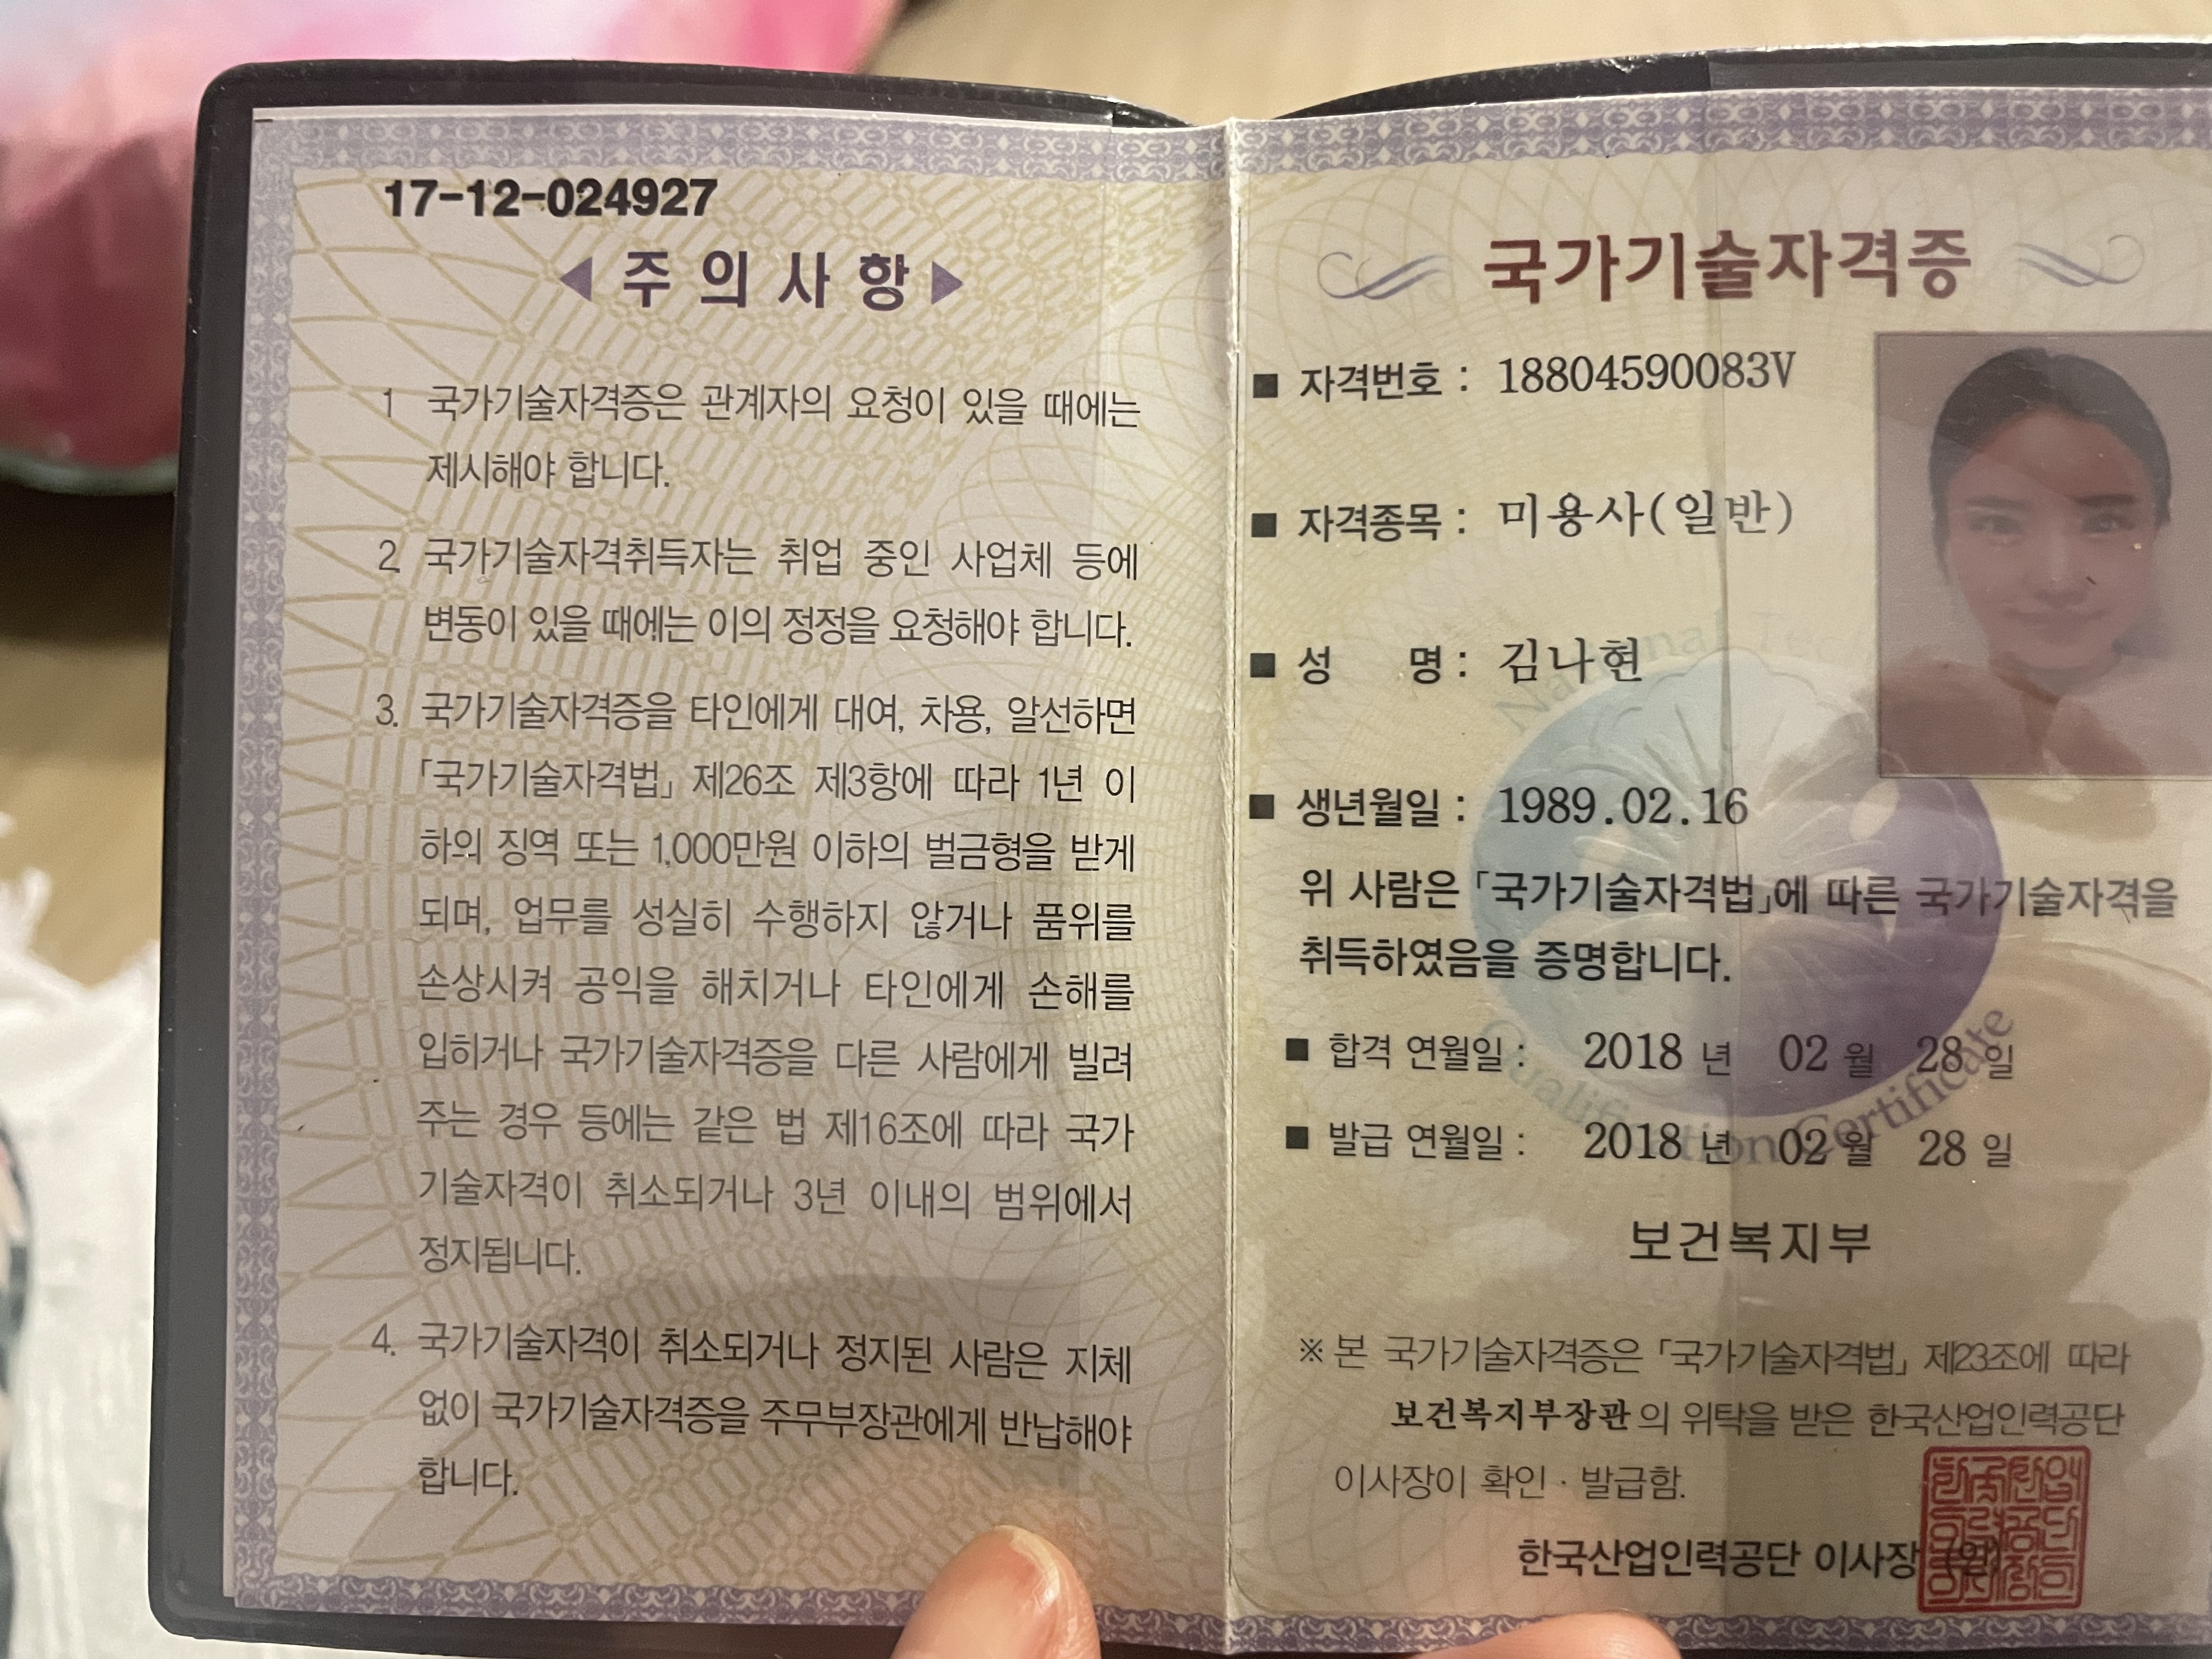 17-12-024927
◀ 주 의 사 항 ▶
1 국가기술자격증은 관계자의 요청이 있을 때에는
제시해야 합니다.
2. 국가기술자격취득자는 취업 중인 사업체 등에
변동이 있을 때에는 이의 정정을 요청해야 합니다.
3. 국가기술자격증을 타인에게 대여, 차용, 알선하면
「국가기술자격법」 제26조 제3항에 따라 1년 이
하의 징역 또는 1,000만원 이하의 벌금형을 받게
되며, 업무를 성실히 수행하지 않거나 품위를
손상시켜 공익을 해치거나 타인에게 손해를
입히거나 국가기술자격증을 다른 사람에게 빌려
주는 경우 등에는 같은 법 제16조에 따라 국가
기술자격이 취소되거나 3년 이내의 범위에서
정지됩니다.
4. 국가기술자격이 취소되거나 정지된 사람은 지체
없이 국가기술자격증을 주무부장관에게 반납해야
합니다.
국가기술자격증
■ 자격번호 : 18804590083V
■ 자격종목 : 미용사(일반)
■ 성 명 : 김나현
■ 생년월일 : 1989.02.16
위 사람은 「국가기술자격법」에 따른 국가기술자격을
취득하였음을 증명합니다.
■ 합격 연월일 : 2018 년 02 월 28 일
■ 발급 연월일 : 2018 년 02 월 28 일
Qualification Certificate
보건복지부
※ 본 국가기술자격증은 「국가기술자격법」 제23조에 따라
보건복지부장관의 위탁을 받은 한국산업인력공단
이사장이 확인 · 발급함.
한국산업인력공단 이사장 (인)